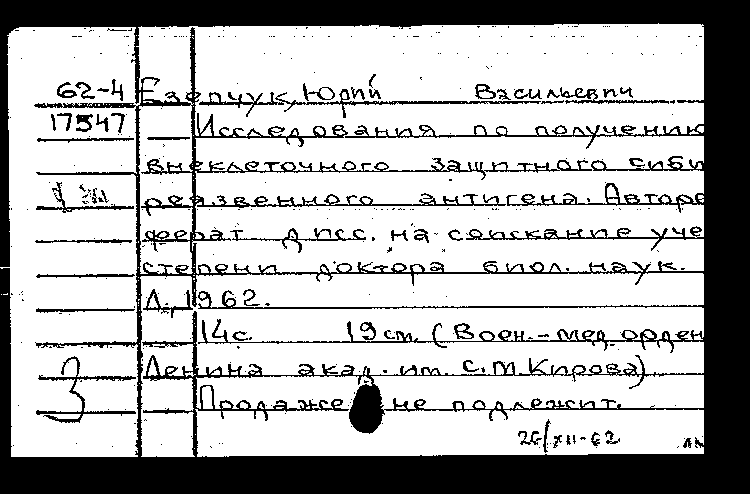 62-4 Езепчук, Юрий Васильевич
17547 Исследования по получению
внеклеточного защитного сиби
реязвенного антигена. Авторе
ферат дисс. на соискание уче
степени доктора биол. наук.
Л., 1962.
14с. 19см. (Воен.-мед. орден
3 Ленина акад. им. С.М.Кирова)
Продаже не подлежит.
26/XII-62